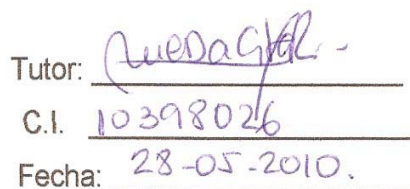 Tutor:
C.I. 10398026
Fecha: 28-05-2010.